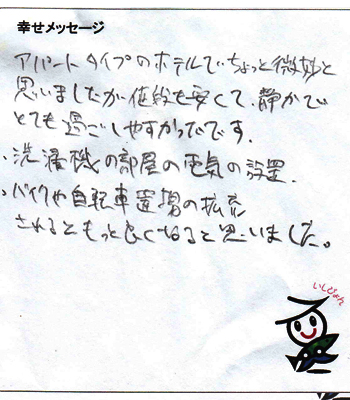 幸せメッセージ
アパートタイプのホテルでちょっと微妙と
思いましたが値段も安くて、静かで
とても過ごしやすかったです。
・洗濯機の部屋の電気の設置.
・バイクや自転車置場の拡充
されるともっと良くなると思いました。
いしぴょん